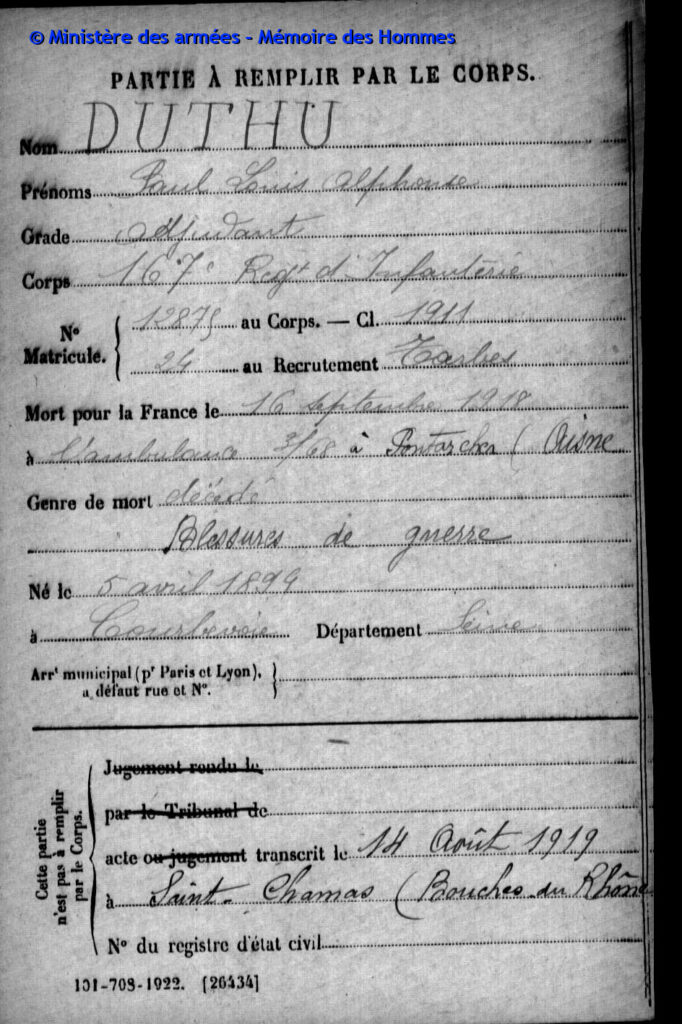 © Ministère des armées - Mémoire des Hommes
PARTIE À REMPLIR PAR LE CORPS.
Nom DUTHU
Prénoms Paul Louis Alphonse
Grade Adjudant
Corps 167e Regt d'Infanterie
No Matricule. { 12875 au Corps. — Cl. 1911
24 au Recrutement Tarbes
Mort pour la France le 16 septembre 1918
à l'ambulance 3/68 à Pontarcher (Aisne
Genre de mort décédé
Blessures de guerre
Né le 5 avril 1899
à Courbevoie Département Seine
Arrt municipal (pr Paris et Lyon), à défaut rue et No. }
Cette partie n'est pas à remplir par le Corps. {
Jugement rendu le
par le Tribunal de
acte ou jugement transcrit le 14 Août 1919
à Saint-Chamas (Bouches-du Rhône
No du registre d'état civil
101-708-1922. [26434]